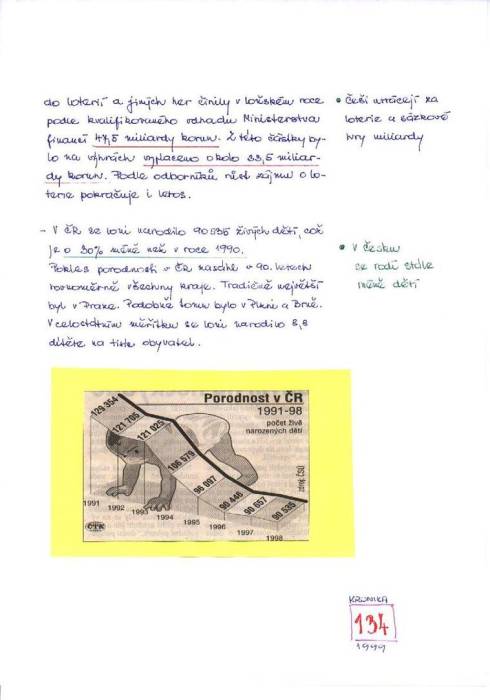 do loterií a jiných her činily v loňském roce
podle kvalifikovaného odhadu Ministerstva
financí 47,5 miliardy korun. Z této částky by-
lo na výhrách vyplaceno okolo 33,5 miliar-
dy korun. Podle odborníků růst zájmu o lo-
terie pokračuje i letos.
• Češi utrácejí za
loterie a sázkové
hry miliardy
- V ČR se loni narodilo 90 535 živých dětí, což
je o 30% méně než v roce 1990.
Pokles porodnosti v ČR zasáhl v 90. letech
rovnoměrně všechny kraje. Tradičně největší
byl v Praze. Podobně tomu bylo v Plzni a Brně.
V celostátním měřítku se loni narodilo 8,8
dítěte na tisíc obyvatel.
• V Česku
se rodí stále
méně dětí
Porodnost v ČR
1991-98
počet živě
narozených dětí
129 354
121 705
121 025
106 579
96 097
90 446
90 657
90 535
1991
1992
1993
1994
1995
1996
1997
1998
zdroj: ČSÚ
ČTK
KRONIKA
134
1999